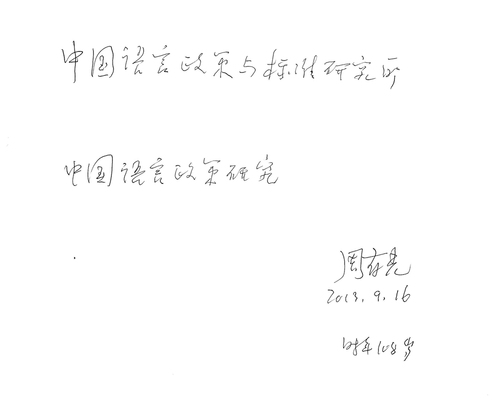 中国语言政策与标准研究所
中国语言政策研究
周有光
2013.9.16
时年108岁